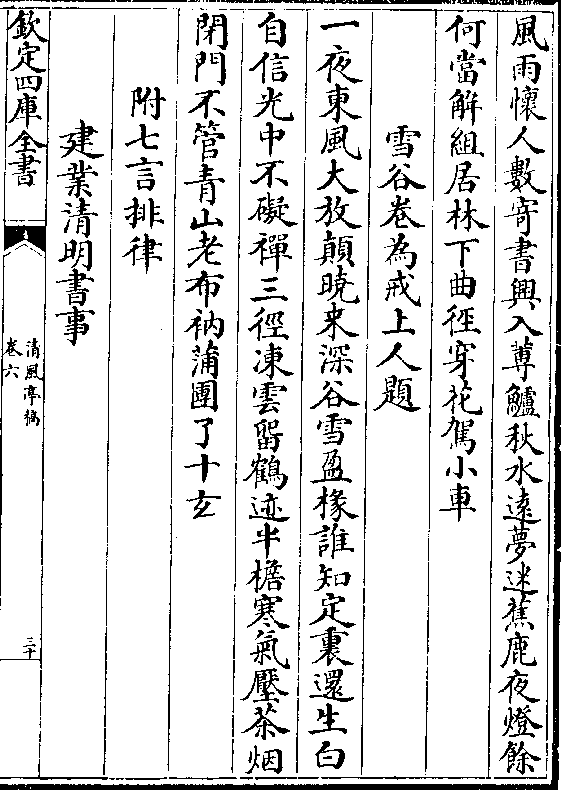 風雨懷人數寄書興入蓴鱸秋水遠夢迷蕉鹿夜燈餘
何當解組居林下曲徑穿花駕小車
雪谷卷為戒上人題
一夜東風大放顛曉來深谷雪盈椽誰知定裏還生白
自信光中不礙禪三徑凍雲留鶴迹半檐寒氣壓茶烟
閉門不管青山老布衲蒲團了十玄
附七言排律
建業清明書事
欽定四庫全書
清風亭稿
卷六
三十